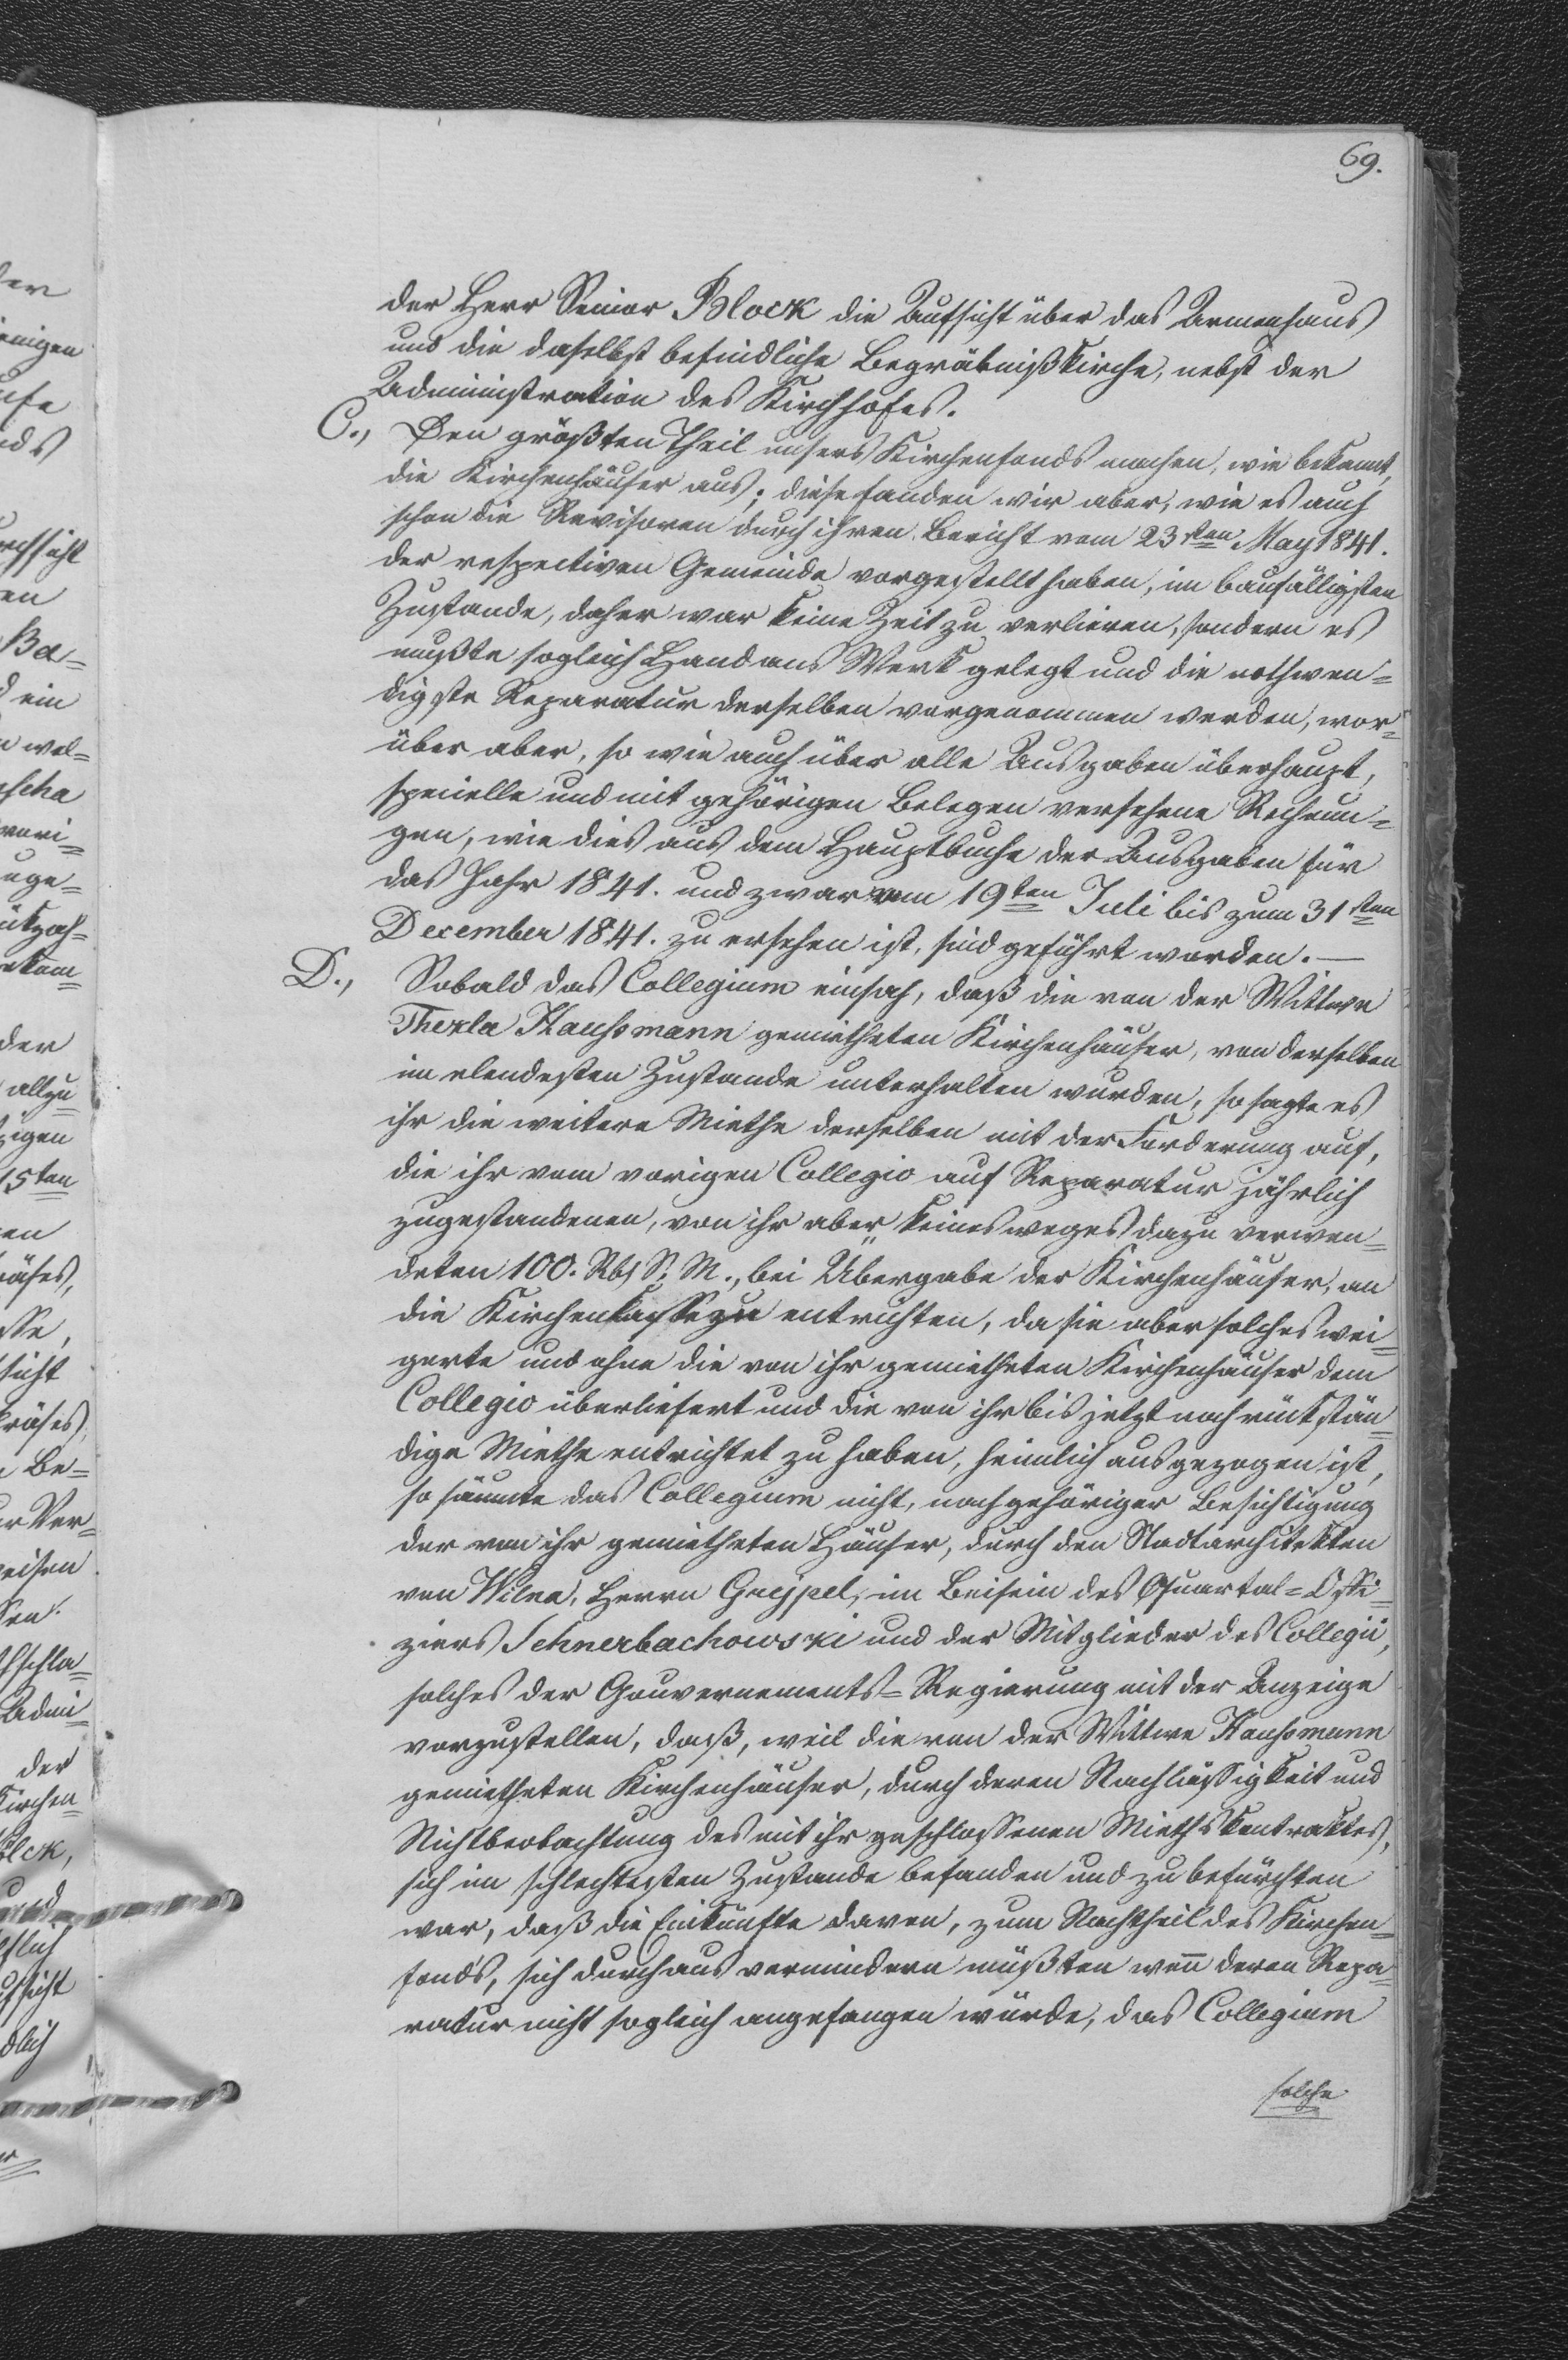 69.
der Herr Senior Block die Aufsicht über das Armenhaus
und die daselbst befindliche Begräbnißkirche, nebst der
Administration des Kirchhofes.
C., Den größten Theil unsers Kirchenfonds machen, wie bekannt,
die Kirchenhäuser aus; diese fanden wir aber, wie es auch
schon die Revisoren durch ihren Bericht vom 23sten May 1841.
der respectiven Gemeinde vorgestellt haben, im baufälligsten
Zustande, daher war keine Zeit zu verlieren, sondern es
mußte sogleich Hand ans Werk gelegt und die nothwen=
digste Reparatur derselben vorgenommen werden, wor=
über aber, so wie auch über alle Ausgaben überhaupt,
specielle und mit gehörigen Belegen versehene Rechnun=
gen, wie dies aus dem Hauptbuche der Ausgaben für
das Jahr 1841. und zwar vom 19ten Juli bis zum 31sten
December 1841. zu ersehen ist, sind geführt worden.—
D., Sobald das Collegium einsah, daß die von der Wittwe
Thekla Haußmann gemietheten Kirchenhäuser, von derselben
im elendesten Zustande unterhalten wurden, so sagte es
ihr die weitere Miethe derselben mit der Forderung auf,
die ihr vom vorigen Collegio auf Reparatur jährlich
zugestandenen, von ihr aber keinesweges dazu verwen=
deten 100. Rbl S. M., bei Übergabe der Kirchenhäuser, an
die Kirchenkasse zu entrichten, da sie aber solches wei=
gerte und ohne die von ihr gemietheten Kirchenhäuser dem
Collegio überliefert und die von ihr bis jetzt noch rückstän=
dige Miethe entrichtet zu haben, heimlich ausgezogen ist,
so säumte das Collegium nicht, nach gehöriger Besichtigung
der von ihr gemietheten Häuser, durch den Stadtarchitekten
von Wilna, Herrn Gryppel, im Beisein des Quartal=Offi=
ziers Schnerbachowski und der Mitglieder des Collegii,
solches der Gouvernements=Regierung mit der Anzeige
vorzustellen, daß, weil die von der Wittwe Haußmann
gemietheten Kirchenhäuser, durch deren Nachlässigkeit und
Nichtbeobachtung des mit ihr geschlossenen Miethskontraktes,
sich im schlechtesten Zustande befanden und zu befürchten
war, daß die Einkünfte davon, zum Nachtheil des Kirchen=
fonds, sich durchaus vermindern müßten wenn deren Repa=
ratur nicht sogleich angefangen würde, das Collegium
solche